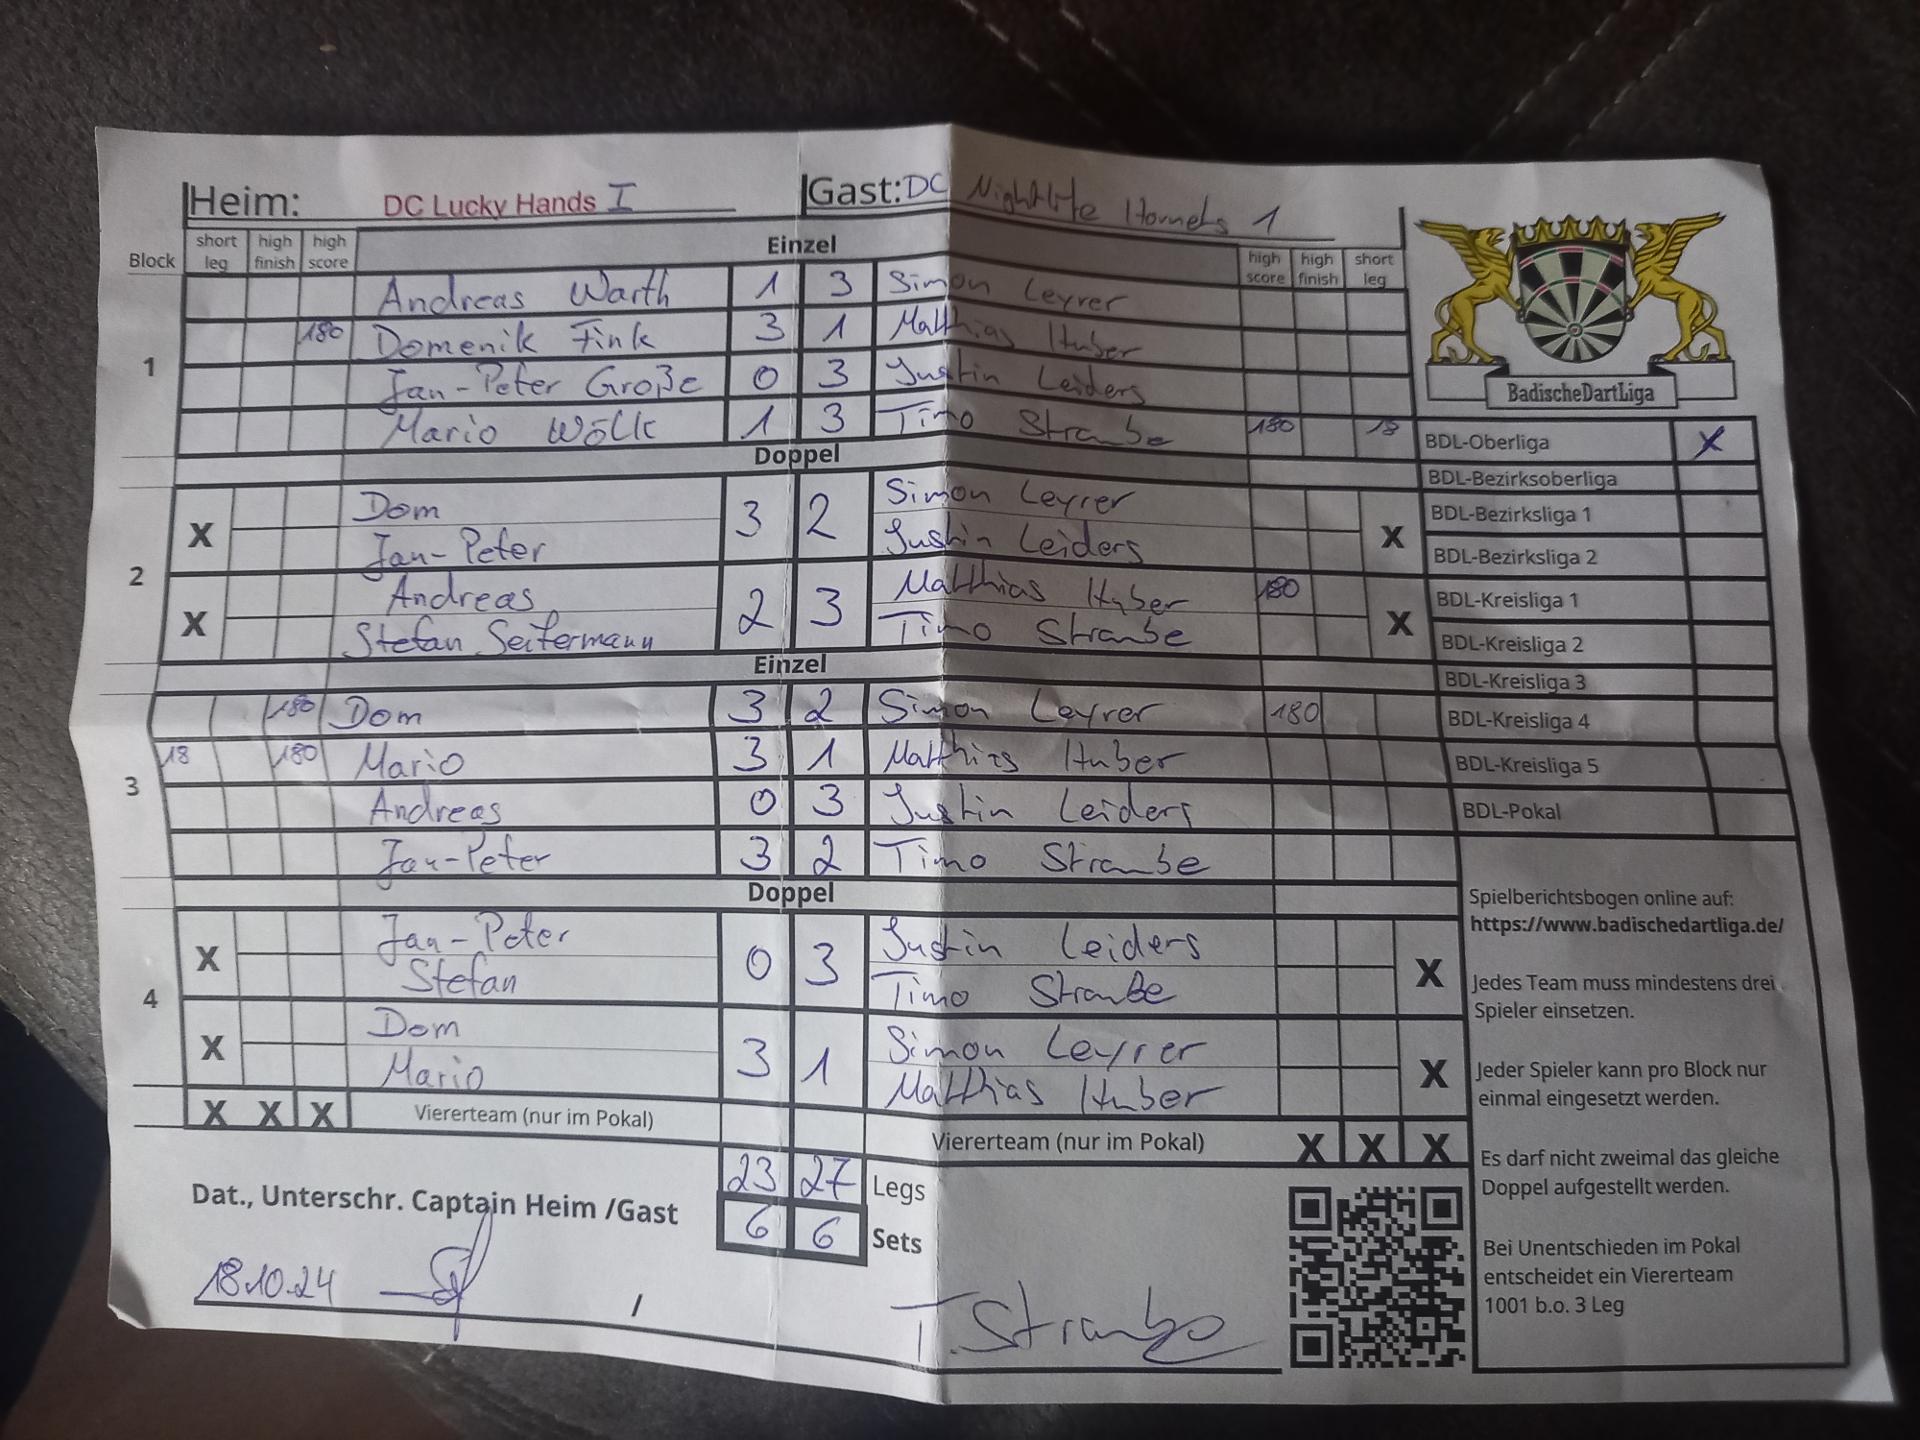 Heim: DC Lucky Hands I Gast: DC Nightlife Hornets 1
Block short leg high finish high score Einzel high score high finish short leg
1
Andreas Warth 1 3 Simon Leyrer
180 Domenik Fink 3 1 Matthias Huber
Jan-Peter Große 0 3 Justin Leiders
Mario Wölk 1 3 Timo Straube 180 18
Doppel
2
X Dom 3 2 Simon Leyrer X
Jan-Peter Justin Leiders
X Andreas 2 3 Matthias Huber 180 X
Stefan Seitermann Timo Straube
Einzel
3
180 Dom 3 2 Simon Leyrer 180
18 180 Mario 3 1 Matthias Huber
Andreas 0 3 Justin Leiders
Jan-Peter 3 2 Timo Straube
Doppel
4
X Jan-Peter 0 3 Justin Leiders X
Stefan Timo Straube
X Dom 3 1 Simon Leyrer X
Mario Matthias Huber
X X X Viererteam (nur im Pokal) Viererteam (nur im Pokal) X X X
23 27 Legs
6 6 Sets
Dat., Unterschr. Captain Heim /Gast
18.10.24 / T. Straube
BadischeDartLiga
BDL-Oberliga X
BDL-Bezirksoberliga
BDL-Bezirksliga 1
BDL-Bezirksliga 2
BDL-Kreisliga 1
BDL-Kreisliga 2
BDL-Kreisliga 3
BDL-Kreisliga 4
BDL-Kreisliga 5
BDL-Pokal
Spielberichtsbogen online auf:
https://www.badischedartliga.de/
Jedes Team muss mindestens drei
Spieler einsetzen.
Jeder Spieler kann pro Block nur
einmal eingesetzt werden.
Es darf nicht zweimal das gleiche
Doppel aufgestellt werden.
Bei Unentschieden im Pokal
entscheidet ein Viererteam
1001 b.o. 3 Leg